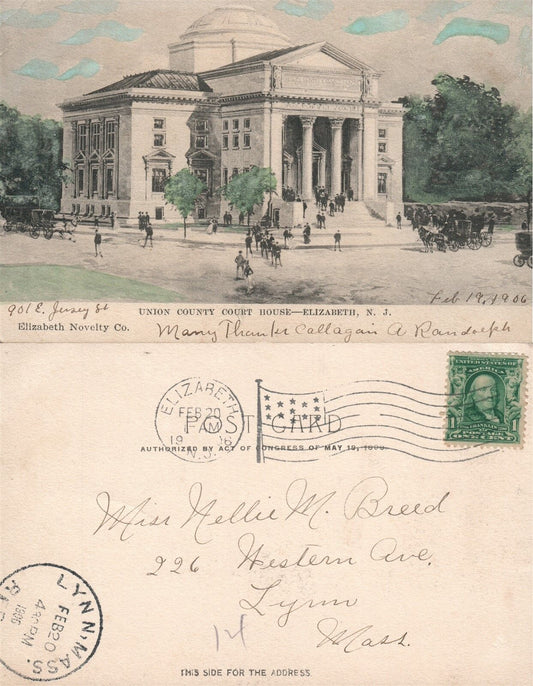 901 E. Jersey St
UNION COUNTY COURT HOUSE—ELIZABETH, N. J.
Feb 19, 1906
Elizabeth Novelty Co.
Many Thanks Call again A Randolph
ELIZABETH
FEB 20
M
1906
N.J.
POST CARD
AUTHORIZED BY ACT OF CONGRESS OF MAY 19, 1898
1
FRANKLIN
ONE CENT
Miss Nellie M. Breed
226 Western Ave.
Lynn
Mass.
LYNN, MASS.
FEB 20
430 PM
1906
THIS SIDE FOR THE ADDRESS.